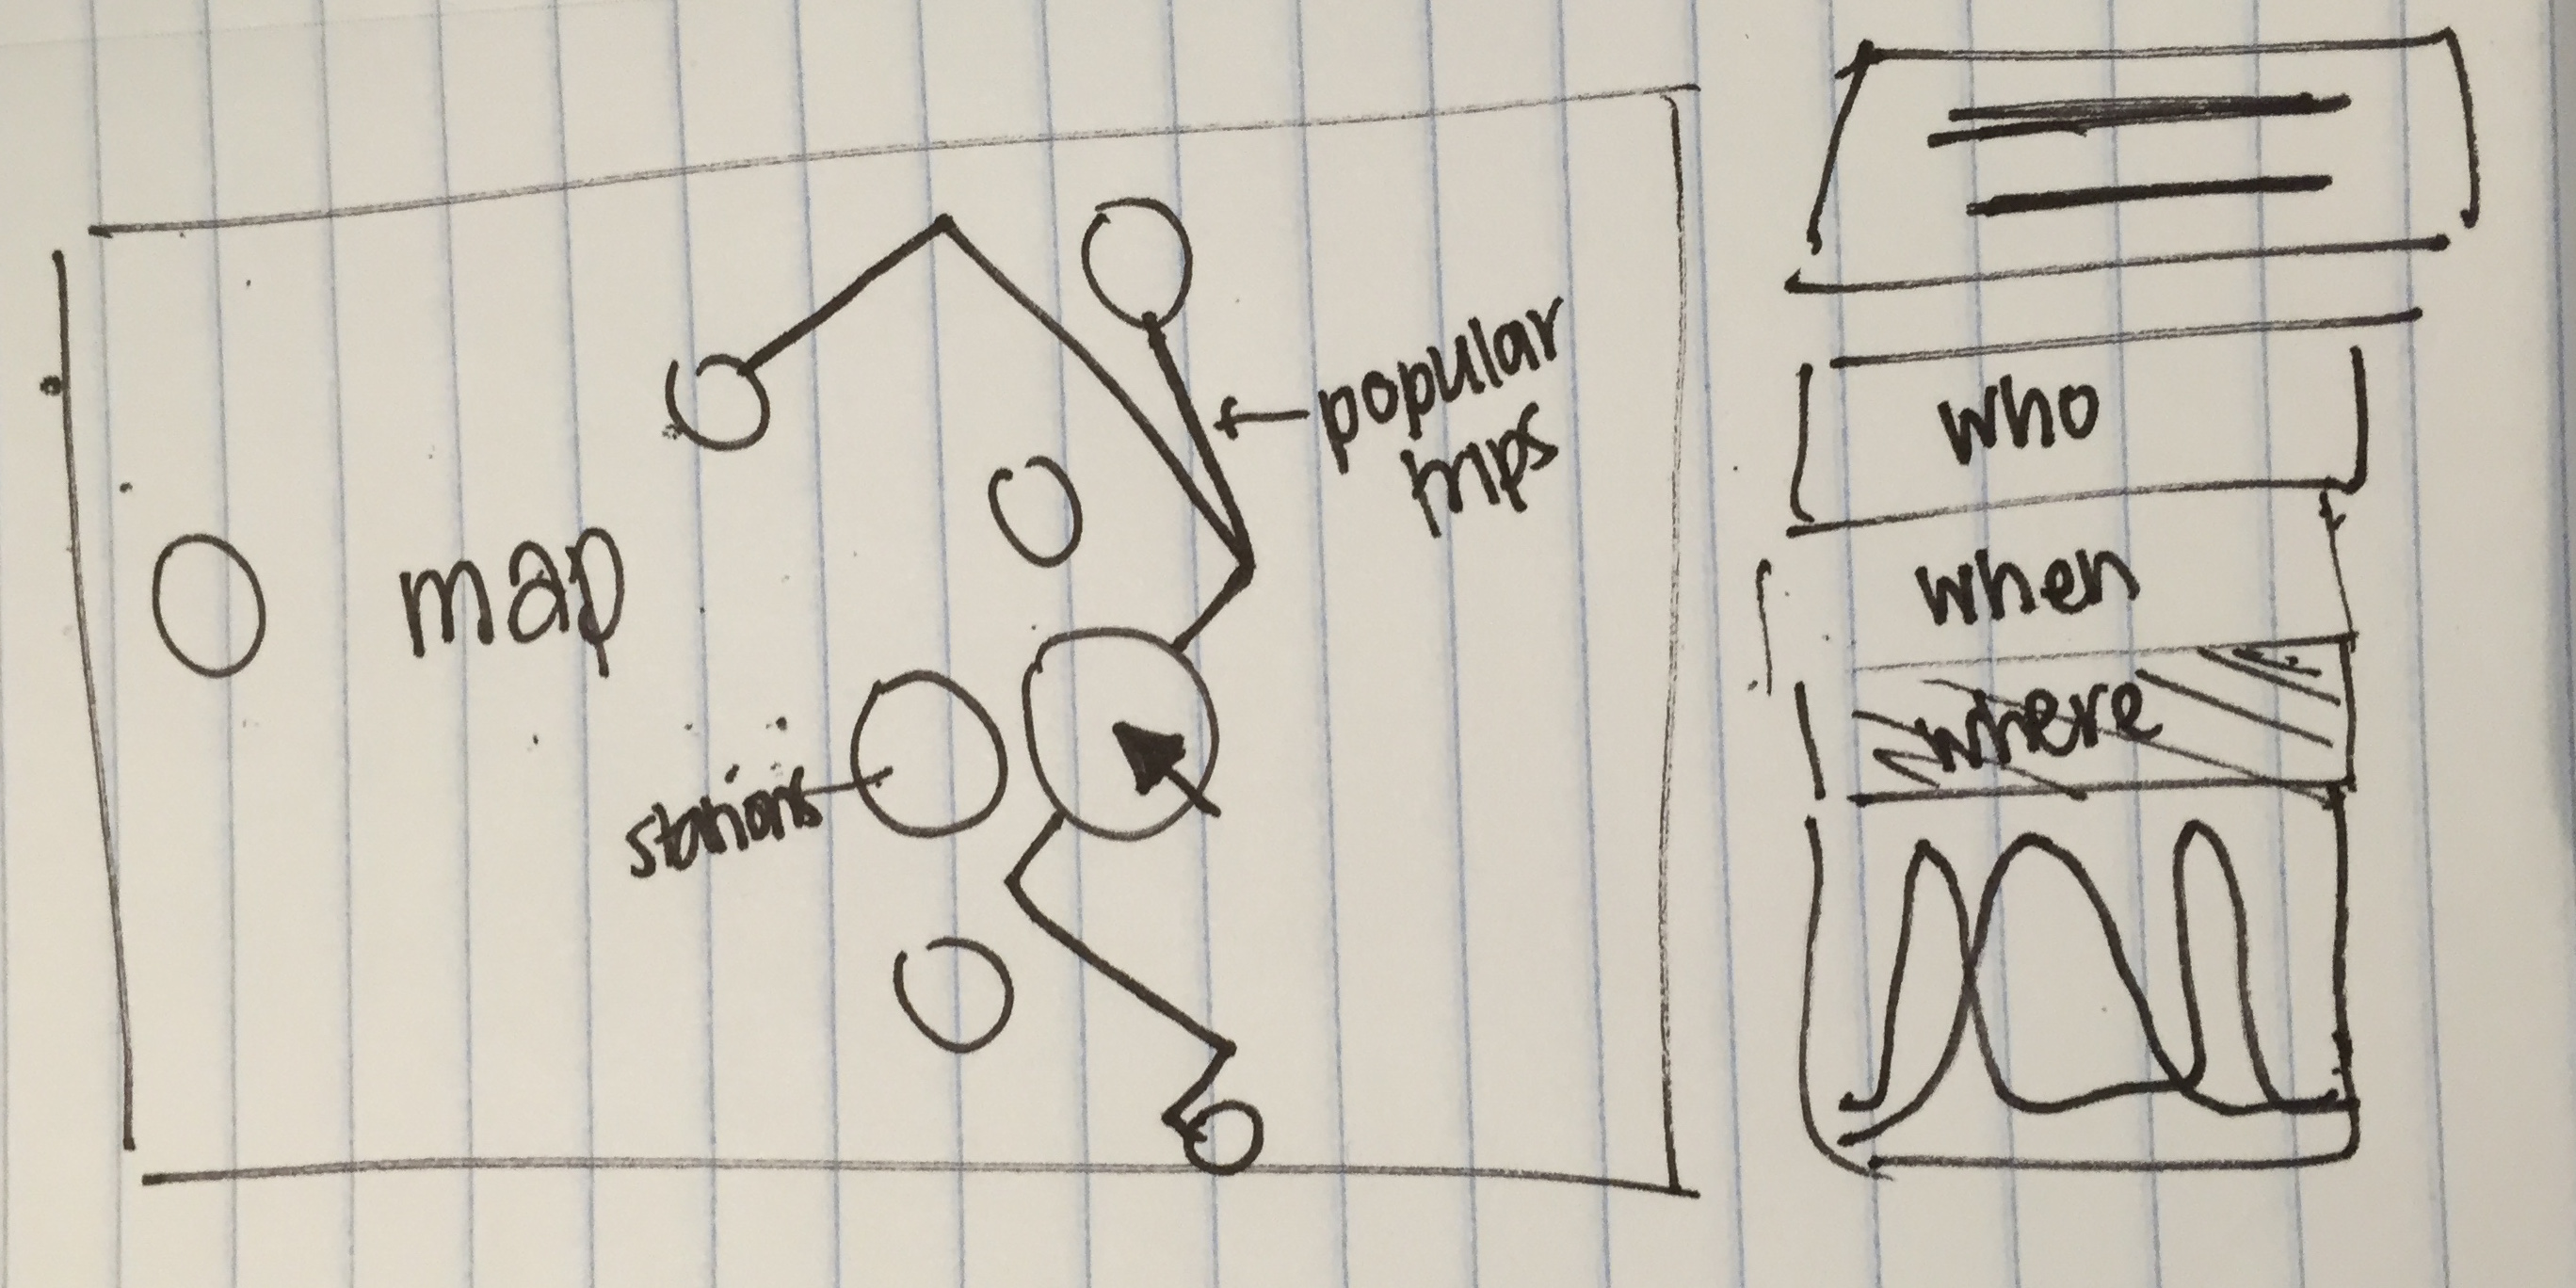 map
popular
trips
stations
who
when
where